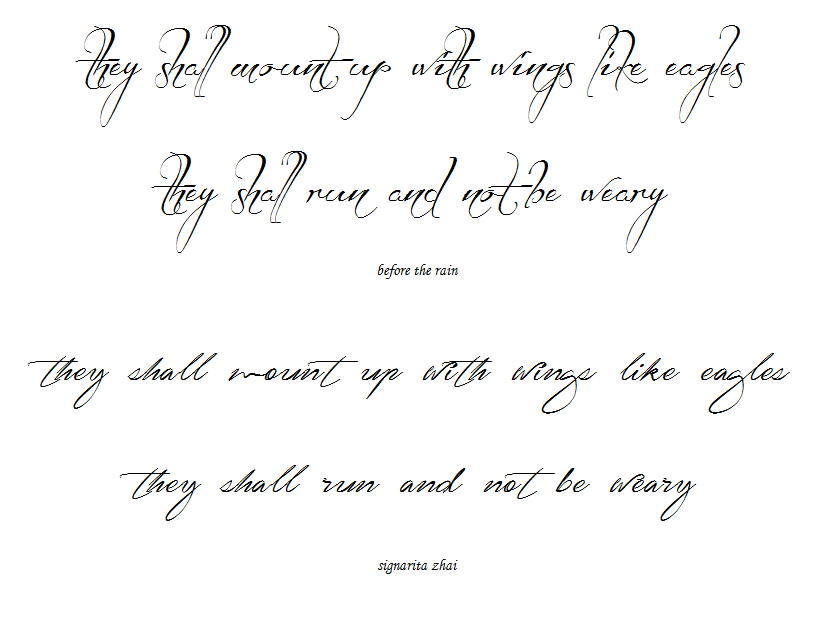 they shall mount up with wings like eagles
they shall run and not be weary
before the rain
they shall mount up with wings like eagles
they shall run and not be weary
signarita zhai